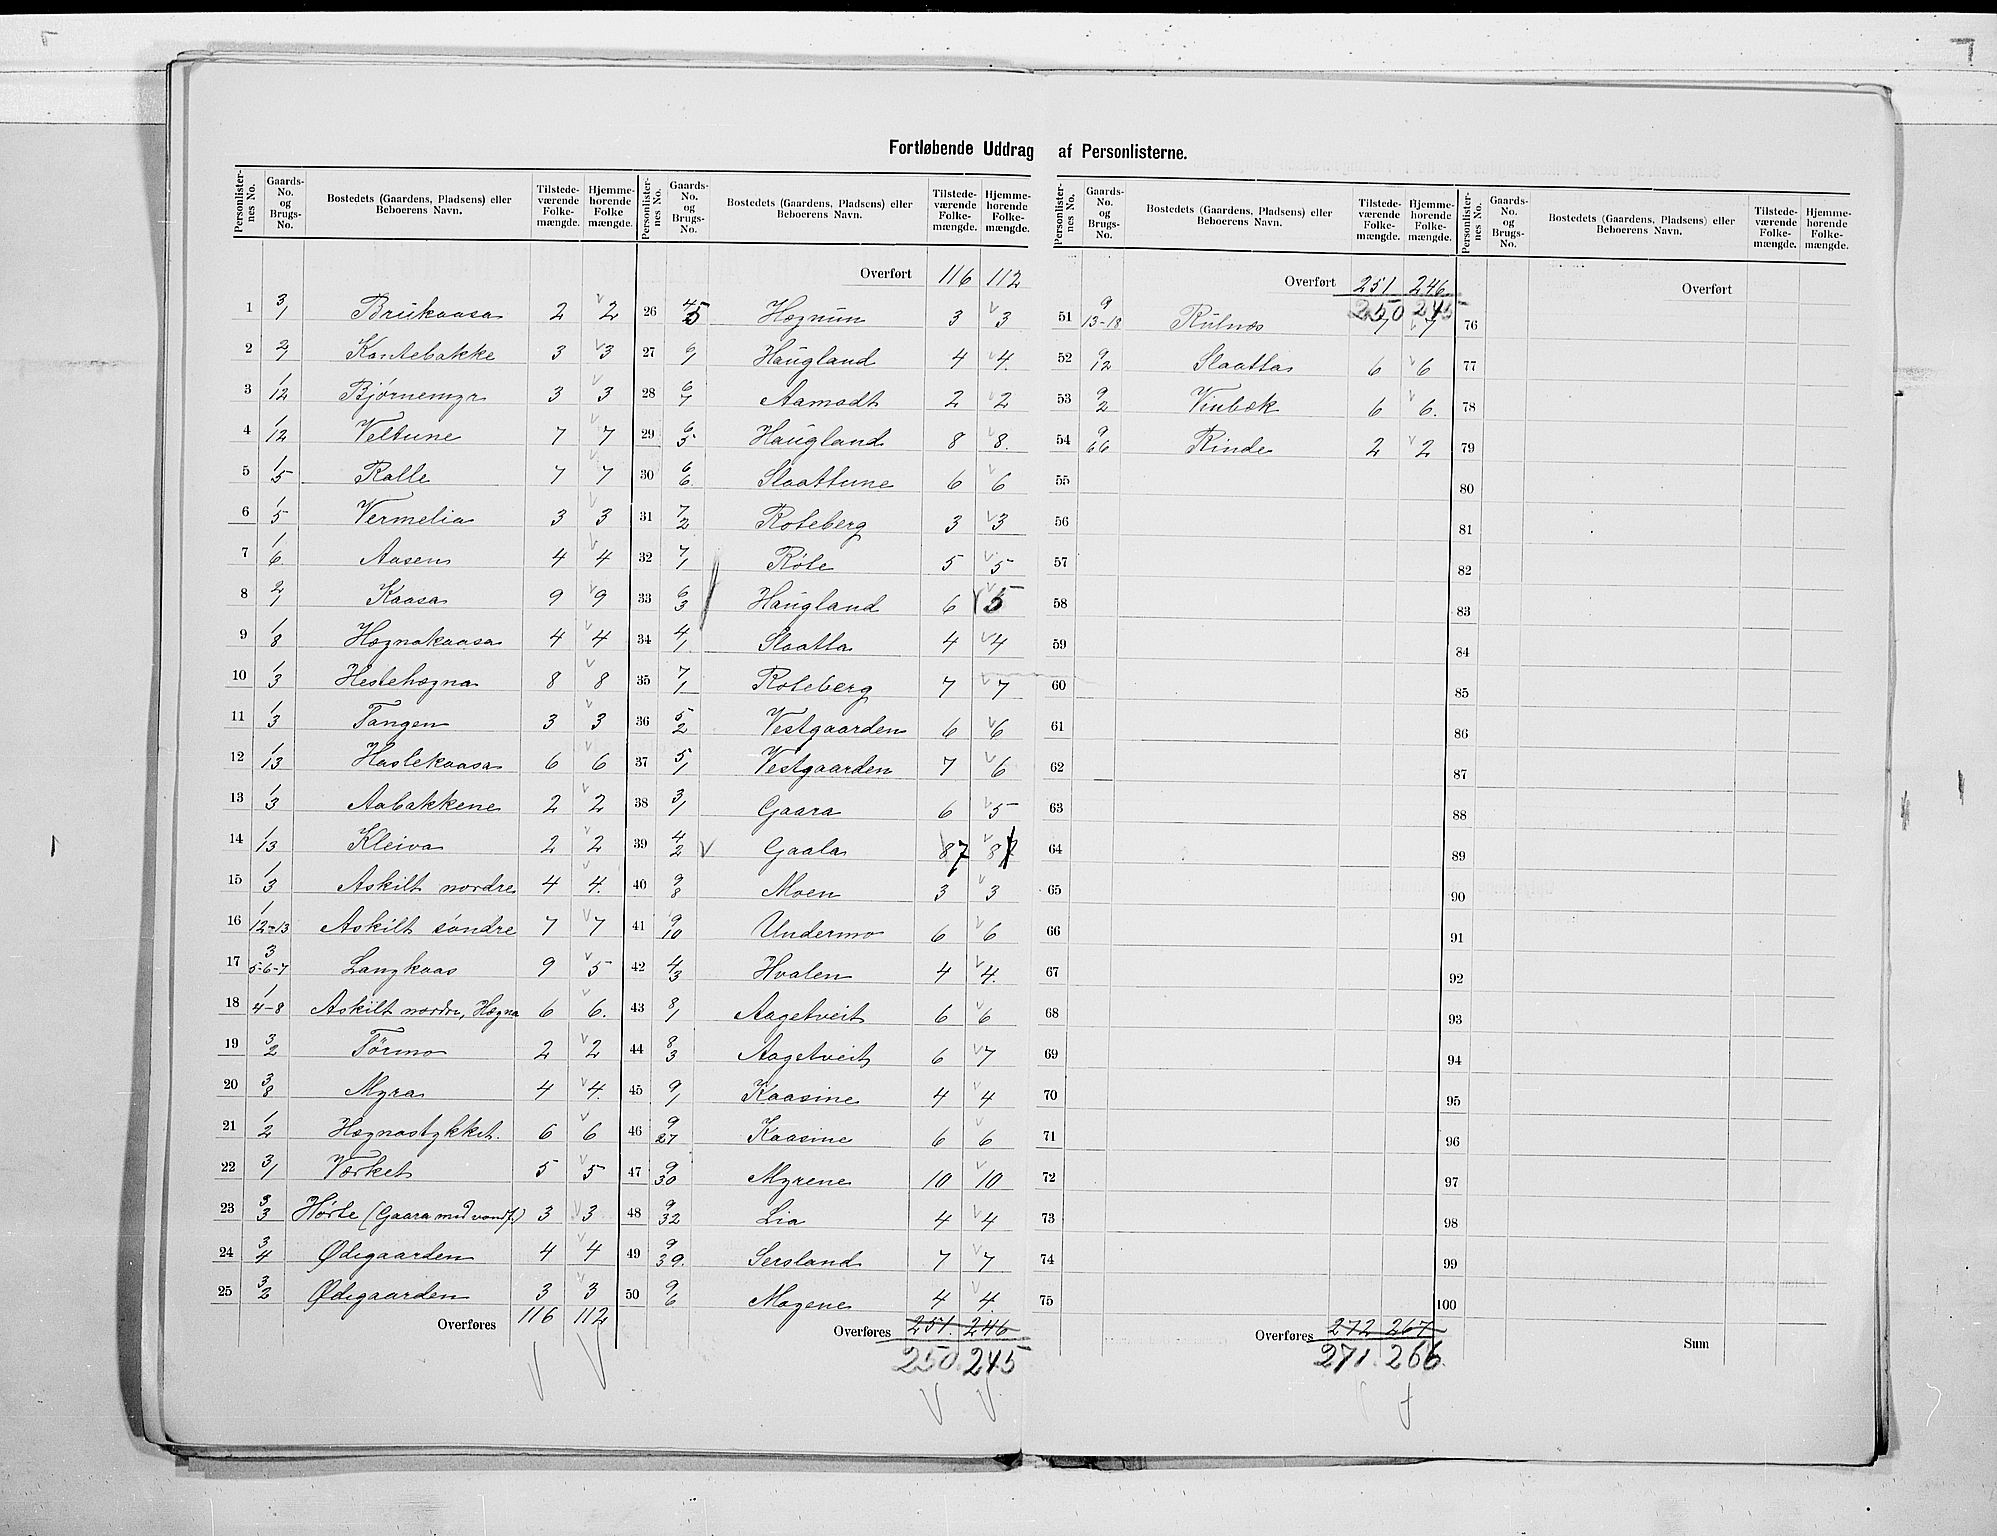 Fortløbende Uddrag af Personlisterne.
Personlister-nes No. Gaards-No. og Brugs-No. Bostedets (Gaardens, Pladsens) eller Beboerens Navn. Tilstede-værende Folke-mængde. Hjemme-hørende Folke mængde.
1 3/1 Brukaasa 2 2
2 2/1 Kantebakke 3 3
3 1/12 Bjørnemyr 3 3
4 1/12 Veltune 7 7
5 1/5 Ralle 7 7
6 1/5 Vermelia 3 3
7 1/6. Aasen 4 4
8 2/1 Kaasa 9 9
9 1/8 Høgnakaasa 4 4
10 1/3 Hestehøgna 8 8
11 1/3 Tangen 3 3
12 1/13 Haslekaasa 6 6
13 1/3 Aabakkene 2 2
14 1/13 Kleiva 2 2
15 1/3 Askilt nordre 4 4.
16 1/12-13 Askilt søndre 7 7
17 3/5-6-7 Langkaas 9 5
18 1/4-8 Askilt nordre, Høgna 6 6.
19 3/2 Tørmo 2 2
20 3/8 Myra 4 4.
21 1/2 Høgnastykket. 6 6
22 3/1 Værket 5 5
23 3/3 Hørte (Gaara med vandf.) 3 3
24 3/4 Ødegaarden 4 4
25 3/2 Ødegaarden 3 3
Overføres 116 112
Personlister-nes No. Gaards-No. og Brugs-No. Bostedets (Gaardens, Pladsens) eller Beboerens Navn. Tilstede-værende Folke-mængde. Hjemme-hørende Folke-mængde.
Overført 116 112
26 4/5 Høgnun 3 3
27 6/1 Haugland 4 4.
28 6/7 Aamodt 2 2
29 6/5 Haugland 8 8.
30 6/6 Slaattene 6 6
31 7/2 Roteberg 3 3
32 7/1 Røte 5 5
33 6/3 Haugland 6 5
34 4/1 Slaatta 4 4
35 7/1 Roteberg 7 7
36 5/2 Vestgaarden 6 6
37 5/1 Vestgaarden 7 6
38 3/1 Gaara 6 5
39 4/2 Gaala 8 7 8 7
40 9/8 Moen 3 3
41 9/10 Undermo 6 6
42 4/3 Hvalen 4 4.
43 8/1 Aagetveit 6 6
44 8/3 Aagetveit 6 7
45 9/1 Kaasine 4 4
46 9/27 Kaasine 6 6
47 9/30 Myrene 10 10
48 9/32 Lia 4 4
49 9/39. Sersland 7 7
50 9/6 Mogene 4 4.
Overføres 251. 246
250. 245
Personlister-nes No. Gaards-No. og Brugs-No. Bostedets (Gaardens, Pladsens) eller Beboerens Navn. Tilstede-værende Folke-mængde. Hjemme-hørende Folke-mængde.
Overført 251 246
250 245
51 9/13-18 Rulnes 7 7
52 9/12 Slaatta 6 6
53 9/2 Vinbæk 6 6.
54 9/66 Rinde 2 2
55
56
57
58
59
60
61
62
63
64
65
66
67
68
69
70
71
72
73
74
75
Overføres 272 267
271. 266.
Personlister-nes No. Gaards-No. og Brugs-No. Bostedets (Gaardens, Pladsens) eller Beboerens Navn. Tilstede-værende Folke-mængde. Hjemme-hørende Folke-mængde.
Overført
76
77
78
79
80
81
82
83
84
85
86
87
88
89
90
91
92
93
94
95
96
97
98
99
100
Sum